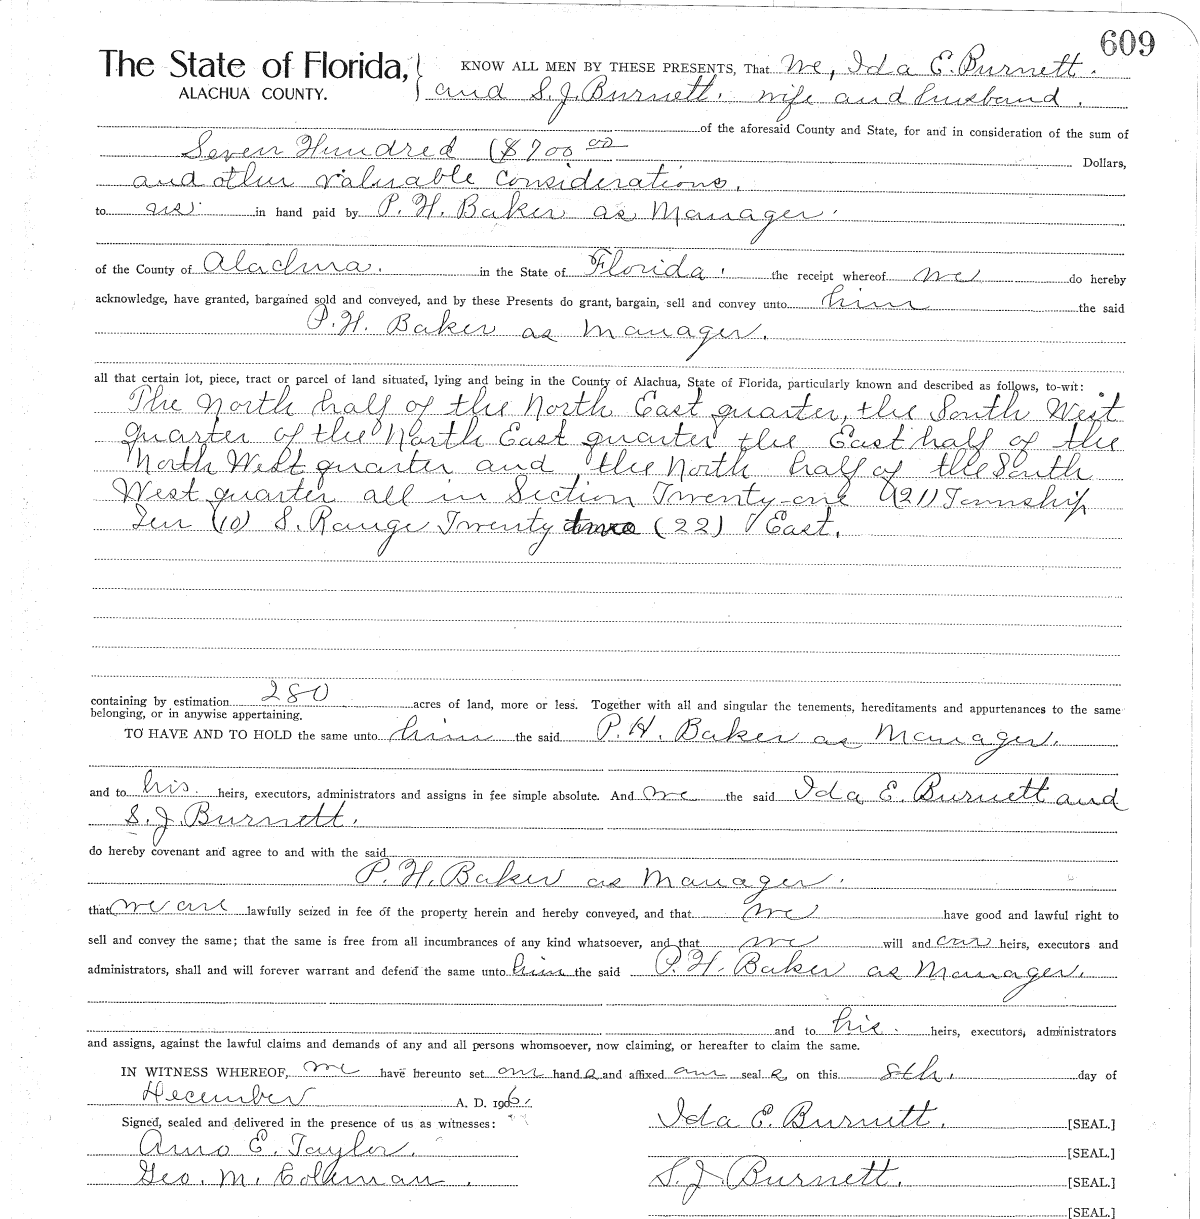 609
The State of Florida, KNOW ALL MEN BY THESE PRESENTS, That We, Ida E. Burnett.
ALACHUA COUNTY. and S. J. Burnett. wife and husband.
of the aforesaid County and State, for and in consideration of the sum of
Seven Hundred ($700 00 Dollars,
and other valuable considerations.
to us. in hand paid by P. H. Baker as Manager.
of the County of Alachua. in the State of Florida. the receipt whereof we do hereby
acknowledge, have granted, bargained sold and conveyed, and by these Presents do grant, bargain, sell and convey unto him the said
P. H. Baker as Manager.
all that certain lot, piece, tract or parcel of land situated, lying and being in the County of Alachua, State of Florida, particularly known and described as follows, to-wit:
The North half of the North East quarter, the South West
quarter of the North East quarter the East half of the
North West quarter and the North half of the South
West quarter all in Section Twenty-one (21) Township
Ten (10) S. Range Twenty two (22) East.
containing by estimation 280 acres of land, more or less. Together with all and singular the tenements, hereditaments and appurtenances to the same
belonging, or in anywise appertaining.
TO HAVE AND TO HOLD the same unto him the said P. H. Baker as Manager.
and to his. heirs, executors, administrators and assigns in fee simple absolute. And we the said Ida E. Burnett and
S. J. Burnett.
do hereby covenant and agree to and with the said
P. H. Baker as Manager.
that we are lawfully seized in fee of the property herein and hereby conveyed, and that we have good and lawful right to
sell and convey the same; that the same is free from all incumbrances of any kind whatsoever, and that we will and our heirs, executors and
administrators, shall and will forever warrant and defend the same unto him the said P. H. Baker as Manager.
and to his. heirs, executors, administrators
and assigns, against the lawful claims and demands of any and all persons whomsoever, now claiming, or hereafter to claim the same.
IN WITNESS WHEREOF, we have hereunto set our hand s and affixed our seal s, on this 8th. day of
December A. D. 1906.
Signed, sealed and delivered in the presence of us as witnesses: Ida E. Burnett. [SEAL.]
Arno E. Taylor. [SEAL.]
Geo. M. Coleman. S. J. Burnett. [SEAL.]
[SEAL.]